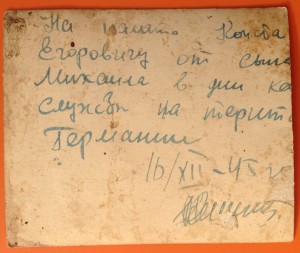 На память Конда
Егоровичу от сына
Михаила в дни
службы на терит
Германии
16/XII-45 г